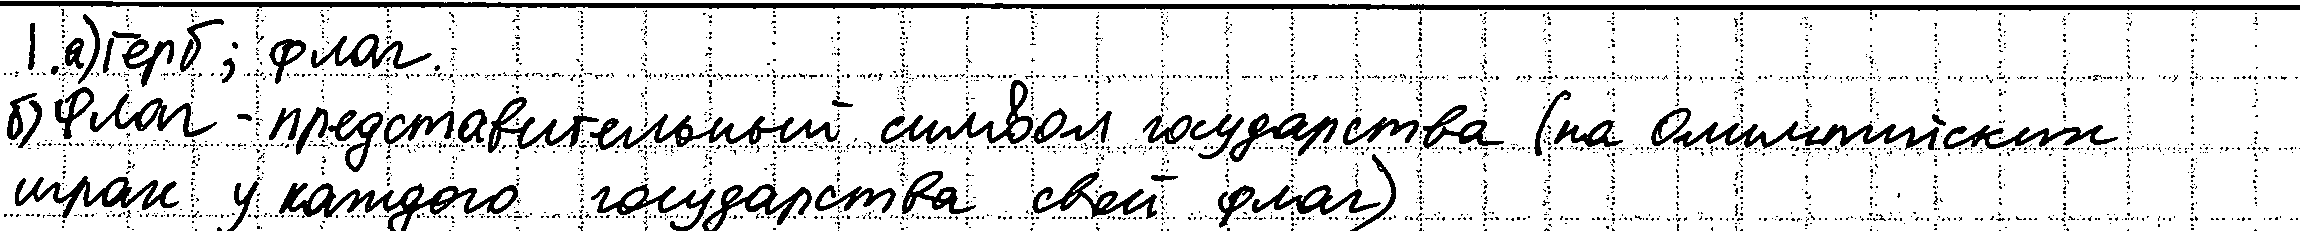 1.а) Герб; флаг.
б) Флаг - представительный символ государства (на Олимпийских
играх у каждого государства свой флаг)